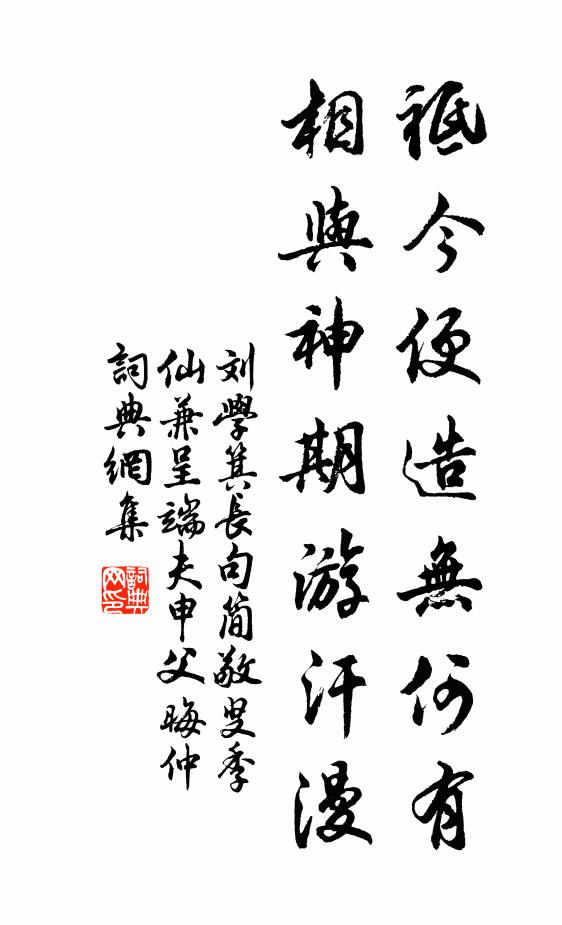 祗今便造無何有
相與神期游汗漫
刘學箕長句简敬叟季
仙兼呈端夫申父晦仲
詞典網集
詞典
网印